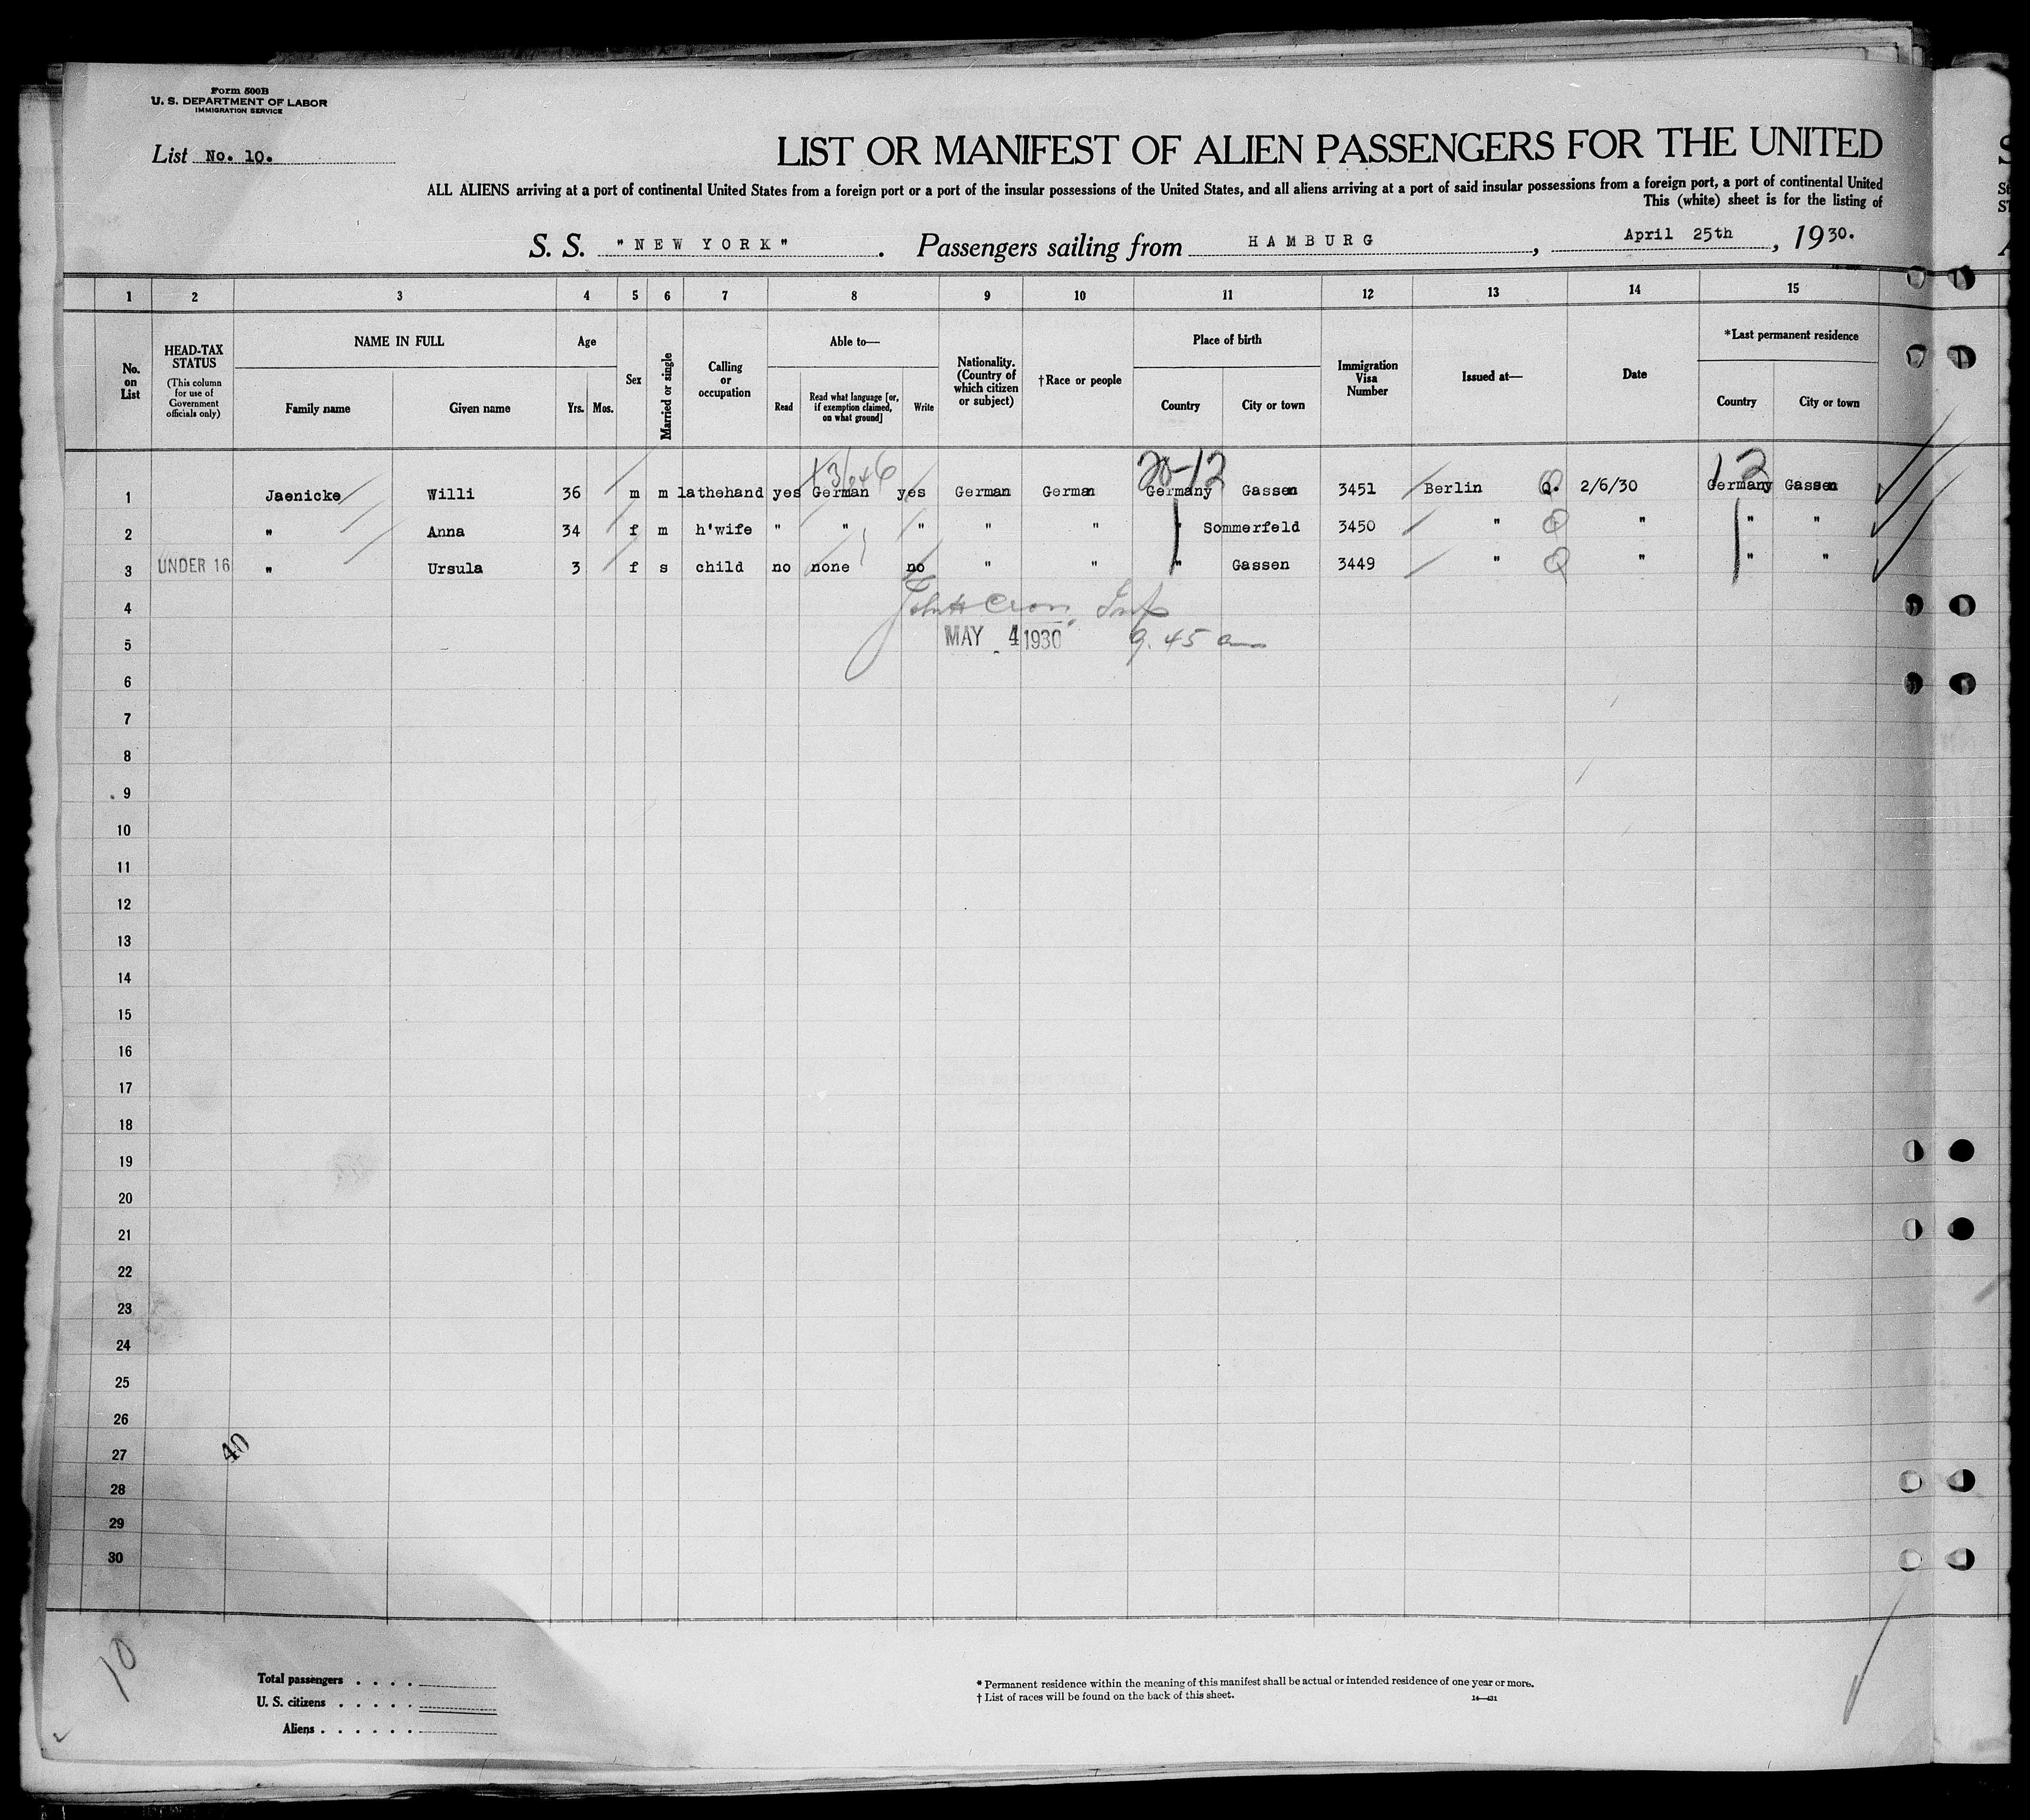 Form 500B
U. S. DEPARTMENT OF LABOR
IMMIGRATION SERVICE
List No. 10.
LIST OR MANIFEST OF ALIEN PASSENGERS FOR THE UNITED
ALL ALIENS arriving at a port of continental United States from a foreign port or a port of the insular possessions of the United States, and all aliens arriving at a port of said insular possessions from a foreign port, a port of continental United
This (white) sheet is for the listing of
S. S. "NEW YORK". Passengers sailing from HAMBURG, April 25th, 1930.
1 2 3 4 5 6 7 8 9 10 11 12 13 14 15
No. on List
HEAD-TAX STATUS
(This column for use of Government officials only)
NAME IN FULL
Family name Given name
Age
Yrs. Mos.
Sex
Married or single
Calling or occupation
Able to—
Read
Read what language [or, if exemption claimed, on what ground]
Write
Nationality. (Country of which citizen or subject)
†Race or people
Place of birth
Country City or town
Immigration Visa Number
Issued at—
Date
*Last permanent residence
Country City or town
20-12 12
1 Jaenicke Willi 36 m m lathehand yes German yes German German Germany Gassen 3451 Berlin Q. 2/6/30 Germany Gassen
2 " Anna 34 f m h'wife " " " " " " Sommerfeld 3450 " Q " " "
3 UNDER 16 " Ursula 3 f s child no none no " " " Gassen 3449 " Q " " "
4
5 MAY 4 1930 9.45 am
6
7
8
9
10
11
12
13
14
15
16
17
18
19
20
21
22
23
24
25
26
27
40
28
29
30
10
Total passengers . . . .
U. S. citizens . . . . .
Aliens . . . . . .
* Permanent residence within the meaning of this manifest shall be actual or intended residence of one year or more.
† List of races will be found on the back of this sheet.
14—431